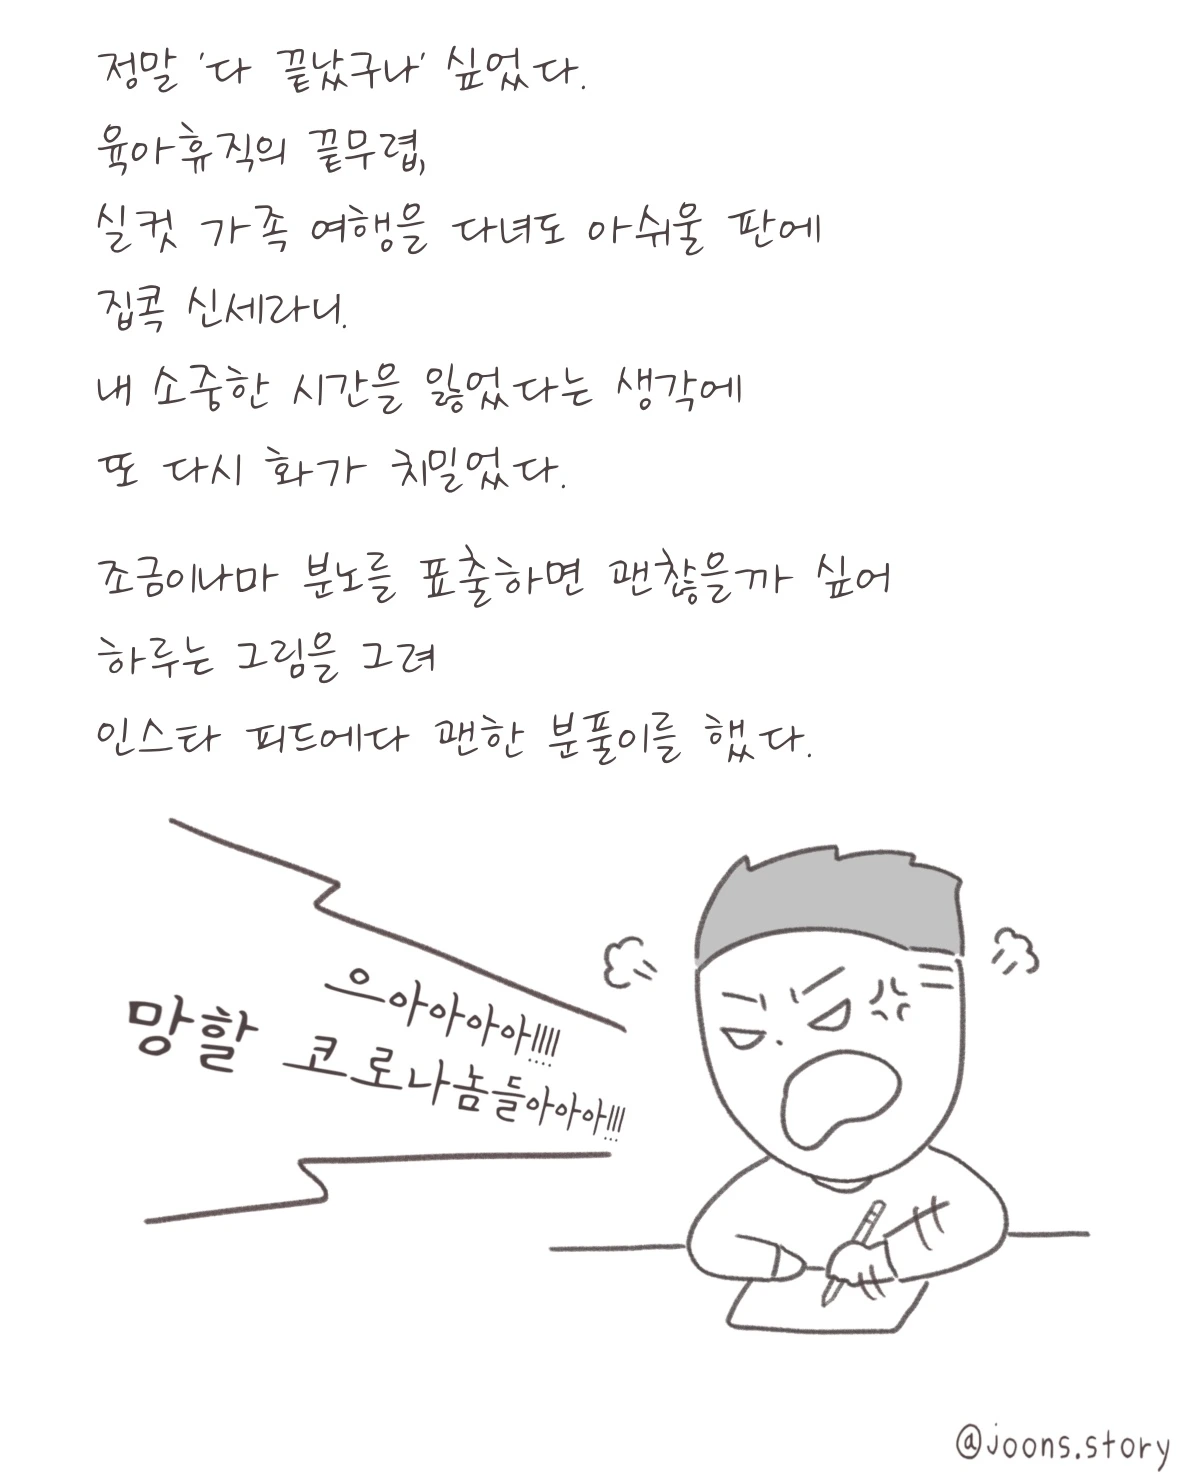 정말 '다 끝났구나' 싶었다.
육아휴직의 끝무렵,
실컷 가족 여행을 다녀도 아쉬울 판에
집콕 신세라니.
내 소중한 시간을 잃었다는 생각에
또 다시 화가 치밀었다.
조금이나마 분노를 표출하면 괜찮을까 싶어
하루는 그림을 그려
인스타 피드에다 괜한 분풀이를 했다.
으아아아아!!!!
망할 코로나놈들아아아!!!
@joons.story